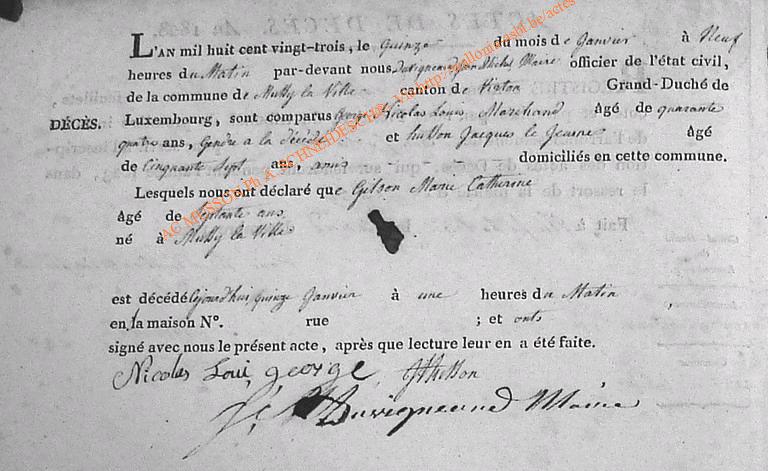 L'AN mil huit cent vingt-trois, le quinze du mois de Janvier à Neuf
heures du Matin par-devant nous Duvigneaud Jean Nicolas Maire officier de l'état civil,
de la commune de Mussy la Ville canton de Virton Grand-Duché de
DÉCÈS. Luxembourg, sont comparus George Nicolas Louis Marchand âgé de quarante
quatre ans, Gendre a la décédée et husson Jacques le Jeune âgé
de Cinquante Sept ans, amis domiciliés en cette commune.
Lesquels nous ont déclaré que Gilson Marie Catherine
âgé de Septante ans
né à Mussy la Ville
est décédé aujourdhui quinze Janvier à une heures du Matin,
en la maison N°. rue ; et ont
signé avec nous le présent acte, après que lecture leur en a été faite.
Nicolas Loui george JHusson
Duvigneaud Maire